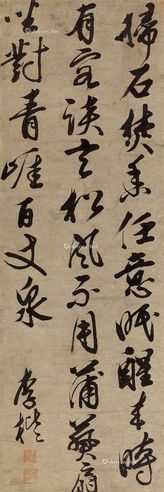 掃石焚香任意眠醒来時
有客談玄松風不用蒲葵扇
坐對青崖百丈泉
李